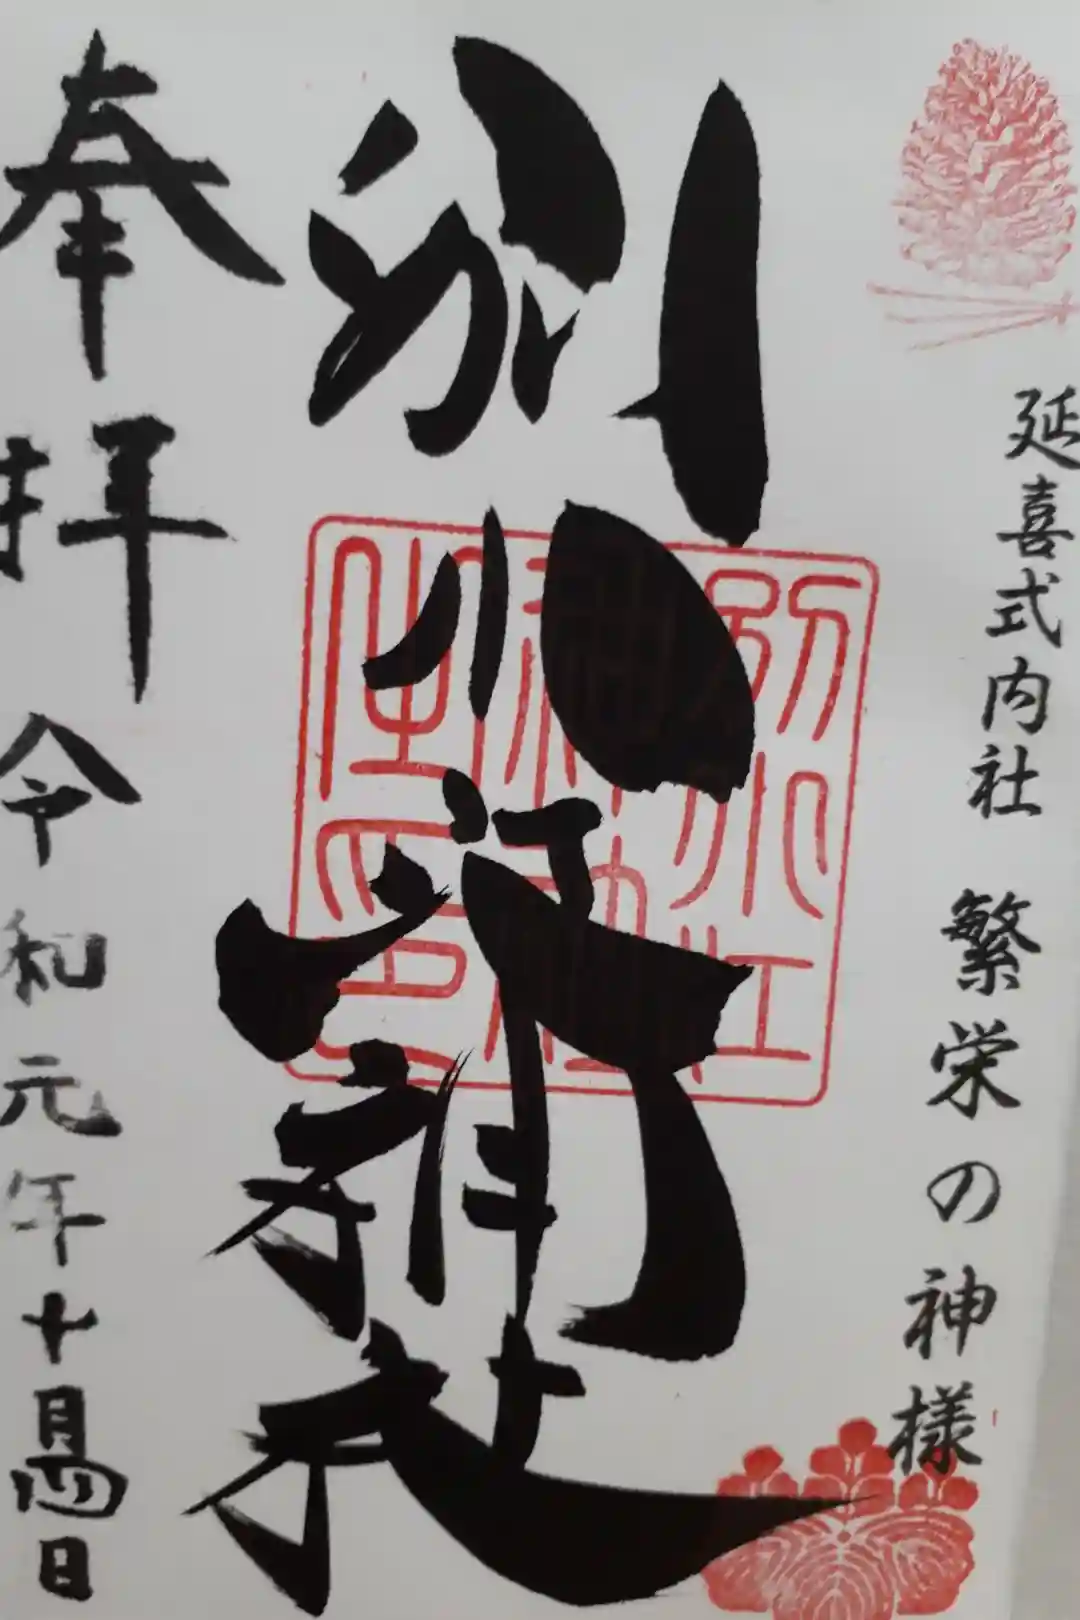 延喜式内社 繁栄の神様
別小江神社
別小江神社之印
奉拝 令和元年十月四日